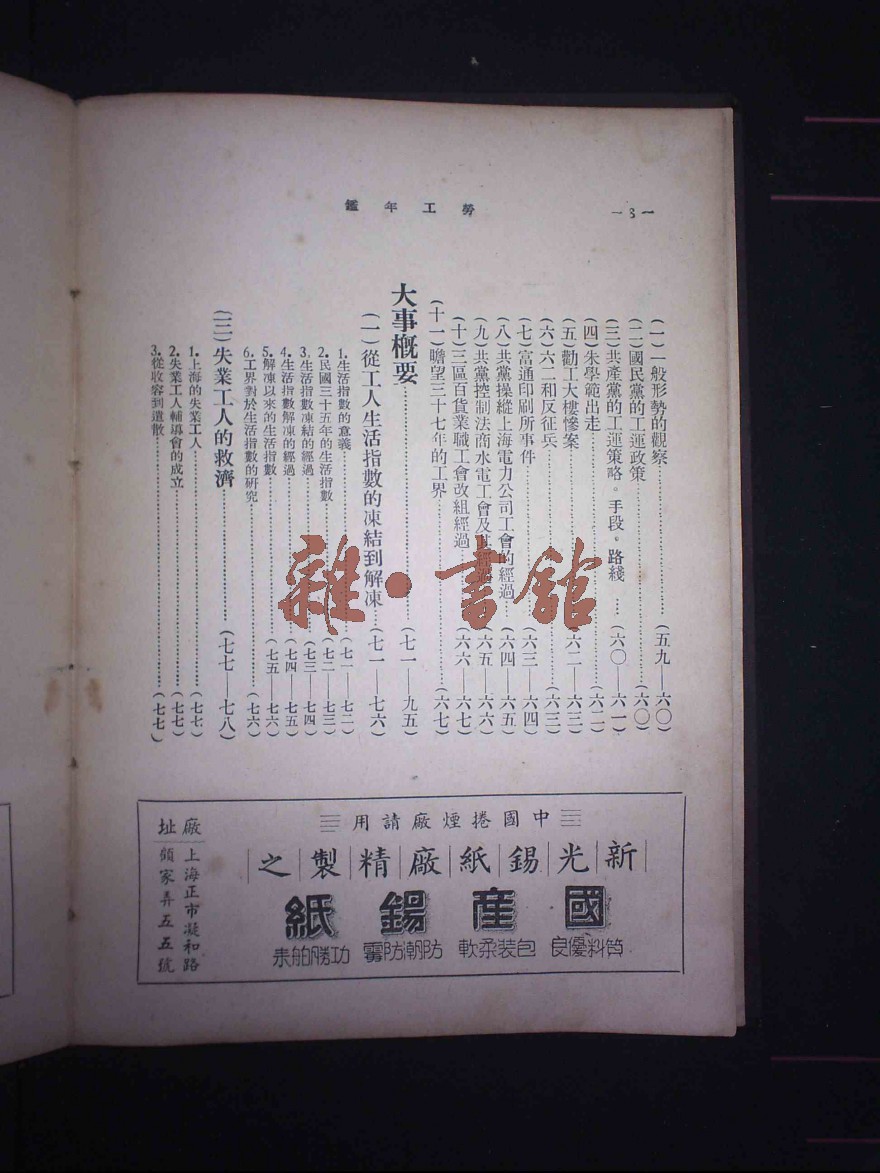 勞工年鑑
一8一
(一)一般形勢的觀察……(五九—六〇)
(二)國民黨的工運政策……(六〇)
(三)共產黨的工運策略。手段。路綫……(六〇—六一)
(四)朱學範出走……(六二)
(五)勸工大樓慘案……(六二—六三)
(六)六二和反征兵……(六三)
(七)富通印刷所事件……(六三—六四)
(八)共黨操縱上海電力公司工會的經過……(六四—六五)
(九)共黨控制法商水電工會及其經過……(六五—六六)
(十)三區百貨業職工會改組經過……(六六—六七)
(十一)瞻望三十七年的工界……(六七)
大事概要……(七一—九五)
(一)從工人生活指數的凍結到解凍……(七一—七六)
1.生活指數的意義……(七一—七二)
2.民國三十五年的生活指數……(七二—七三)
3.生活指數凍結的經過……(七三—七四)
4.生活指數解凍的經過……(七四—七五)
5.解凍以來的生活指數……(七五—七六)
6.工界對於生活指數的研究……(七六)
(二)失業工人的救濟……(七七—七八)
1.上海的失業工人……(七七)
2.失業工人輔導會的成立……(七七)
3.從收容到遣散……(七七)
雜·書館
中國捲煙廠請用
新光錫紙廠精製之
國產錫紙
質料優良 包裝柔軟 防潮防霉 功勝舶來
廠址
上海正市凝和路
顧家弄五五號